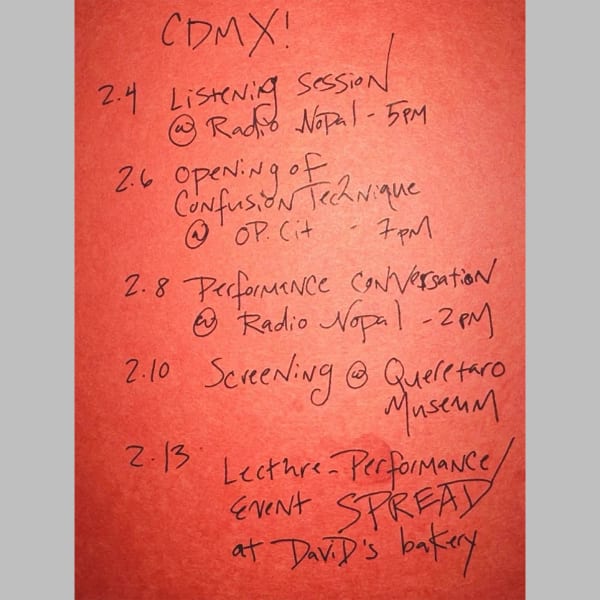 CDMX!
2.4 Listening Session
@ Radio Nopal - 5pm
2.6 Opening of
Confusion Technique
@ OP. Cit - 7pm
2.8 Performance conversation
@ Radio Nopal - 2pm
2.10 Screening @ Queretaro
Museum
2.13 Lecture-Performance/
Event SPREAD
at DaviD's bakery